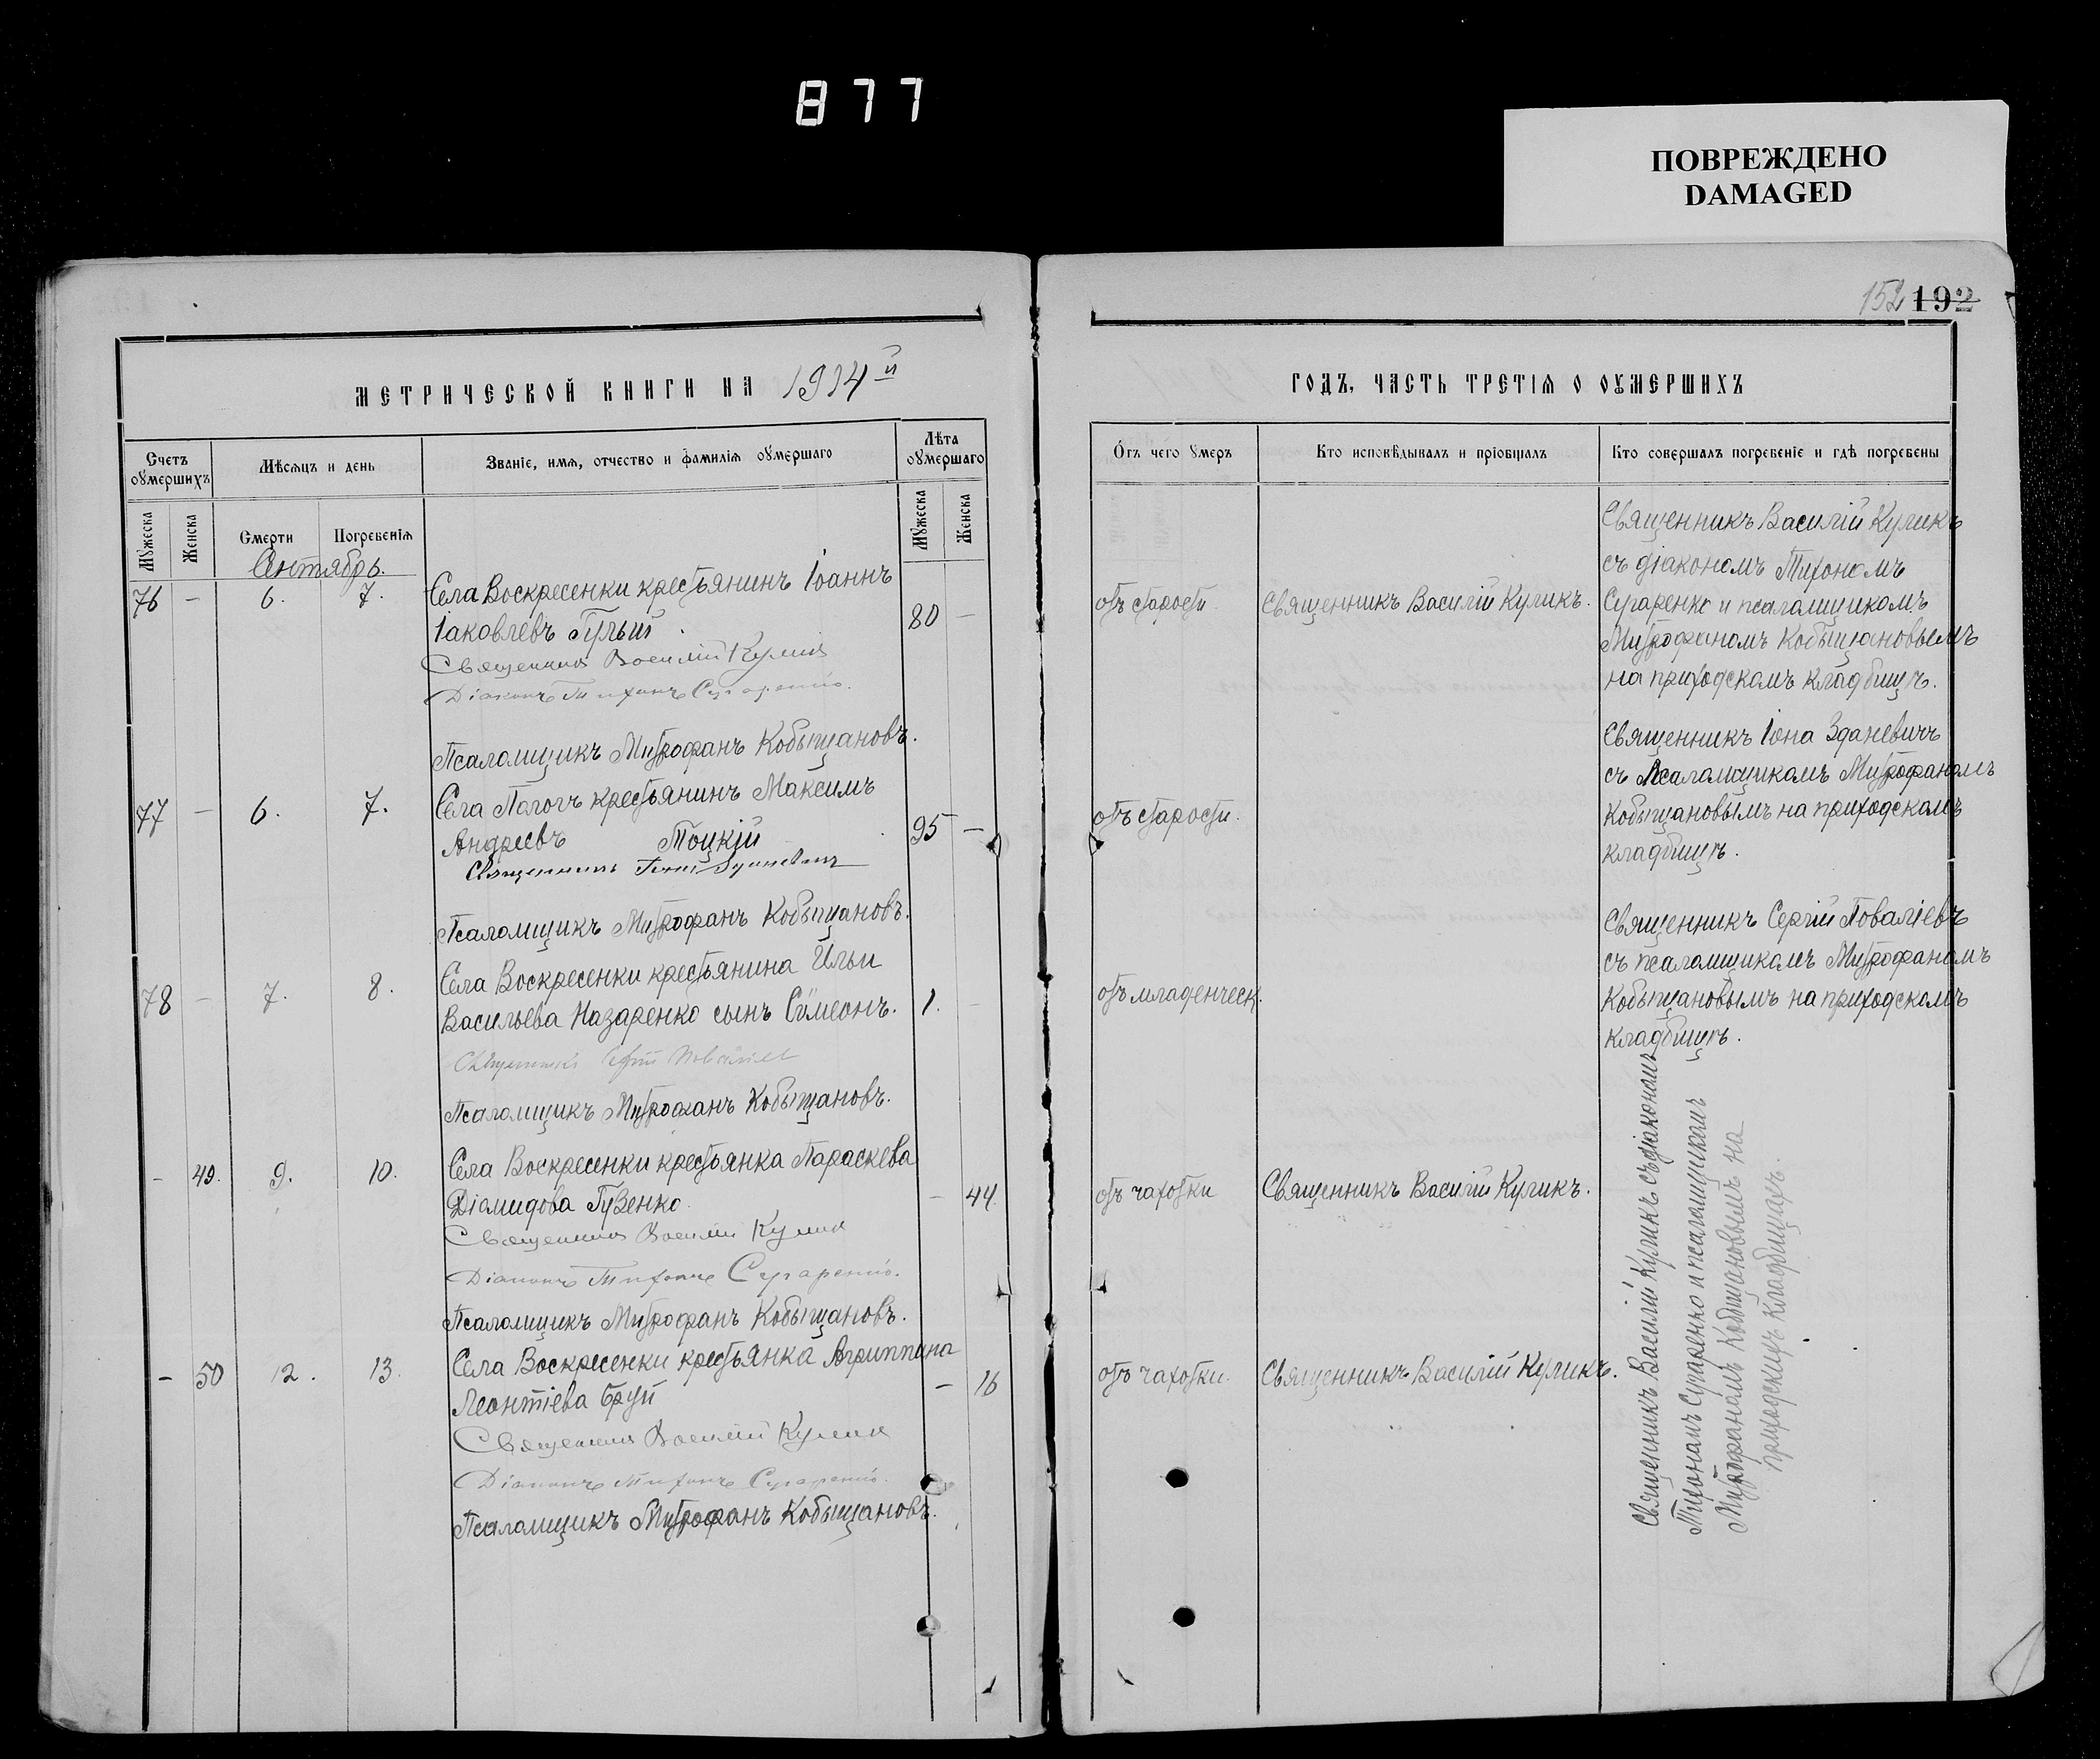 877
ПОВРЕЖДЕНО
DAMAGED
152 192
МЕТРИЧЕСКОЙ КНИГИ НА 1914й
Счетъ оумершихъ
Мѣсяцъ и день
Званіе, имя, отчество и фамилія оумершаго
Лѣта оумершаго
Мужеска
Женска
Смерти
Погребенія
Мужеска
Женска
Сентябрь.
76 - 6. 7. Села Воскресенки крестьянинъ Іоаннъ
Іаковлевъ Гулый. 80 -
Священникъ Василій Куликъ
Діаконъ Тихонъ Сугаренко.
Псаломщикъ Митрофанъ Кобыщановъ.
77 - 6. 7. Села Пологъ крестьянинъ Максимъ
Андреевъ Тоцкій 95 -
Священникъ
Псаломщикъ Митрофанъ Кобыщановъ.
78 - 7. 8. Села Воскресенки крестьянина Ильи
Васильева Назаренко сынъ Сѵмеонъ. 1. -
Священникъ Сергій Поваліевъ
Псаломщикъ Митрофанъ Кобыщановъ.
- 49. 9. 10. Села Воскресенки крестьянка Параскева
Діомидова Гузенко. - 44.
Священникъ Василій Куликъ
Діаконъ Тихонъ Сугаренко.
Псаломщикъ Митрофанъ Кобыщановъ.
- 50 12. 13. Села Воскресенки крестьянка Агриппина
Леонтіева Бруй - 16
Священникъ Василій Куликъ
Діаконъ Тихонъ Сугаренко.
Псаломщикъ Митрофанъ Кобыщановъ.
ГОДЪ, ЧАСТЬ ТРЕТІЯ О ОУМЕРШИХЪ
Отъ чего умеръ
Кто исповѣдывалъ и пріобщалъ
Кто совершалъ погребеніе и гдѣ погребены
отъ старости Священникъ Василій Куликъ.
Священникъ Василій Куликъ
съ діакономъ Тихономъ
Сугаренко и псаломщикомъ
Митрофаномъ Кобыщановымъ
на приходскомъ кладбищѣ.
отъ старости.
Священникъ Іона Зданевичъ
съ Псаломщикомъ Митрофаномъ
Кобыщановымъ на приходскомъ
кладбищѣ.
отъ младенческ.
Священникъ Сергій Поваліевъ
съ псаломщикомъ Митрофаномъ
Кобыщановымъ на приходскомъ
кладбищѣ.
отъ чахотки Священникъ Василій Куликъ.
отъ чахотки. Священникъ Василій Куликъ.
Священникъ Василій Куликъ съ діакономъ
Тихономъ Сугаренко и псаломщикомъ
Митрофаномъ Кобыщановымъ на
приходскихъ кладбищахъ.